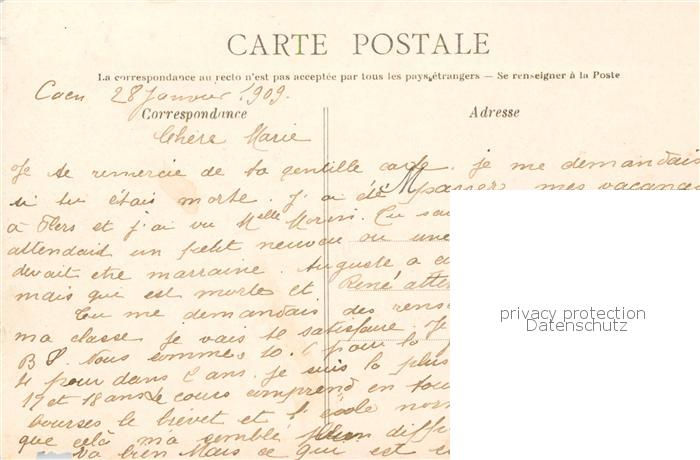 CARTE POSTALE
La correspondance au recto n'est pas acceptée par tous les pays étrangers — Se renseigner à la Poste
Caen 28 Janvier 1909.
Correspondance
Adresse
Chère Marie
Je te remercie de ta gentille carte. je me demandais
si tu étais morte. J'ai été passer mes vacances
à Flers et j'ai vu Melle Morin. Tu
attendait un petit neuveu ou une
devait etre marraine. Auguste a
mais qui est morte et René
Tu me demandais des
ma classe je vais te satisfaire. Je
B S. Nous sommes 10. 6 pour la
4 pour dans 2 ans. je suis la plus
17 et 18 ans Le cours comprend en
bourses le brevet et l'école
que celà m'a semblé bien
va bien Mais ce qui est
privacy protection
Datenschutz